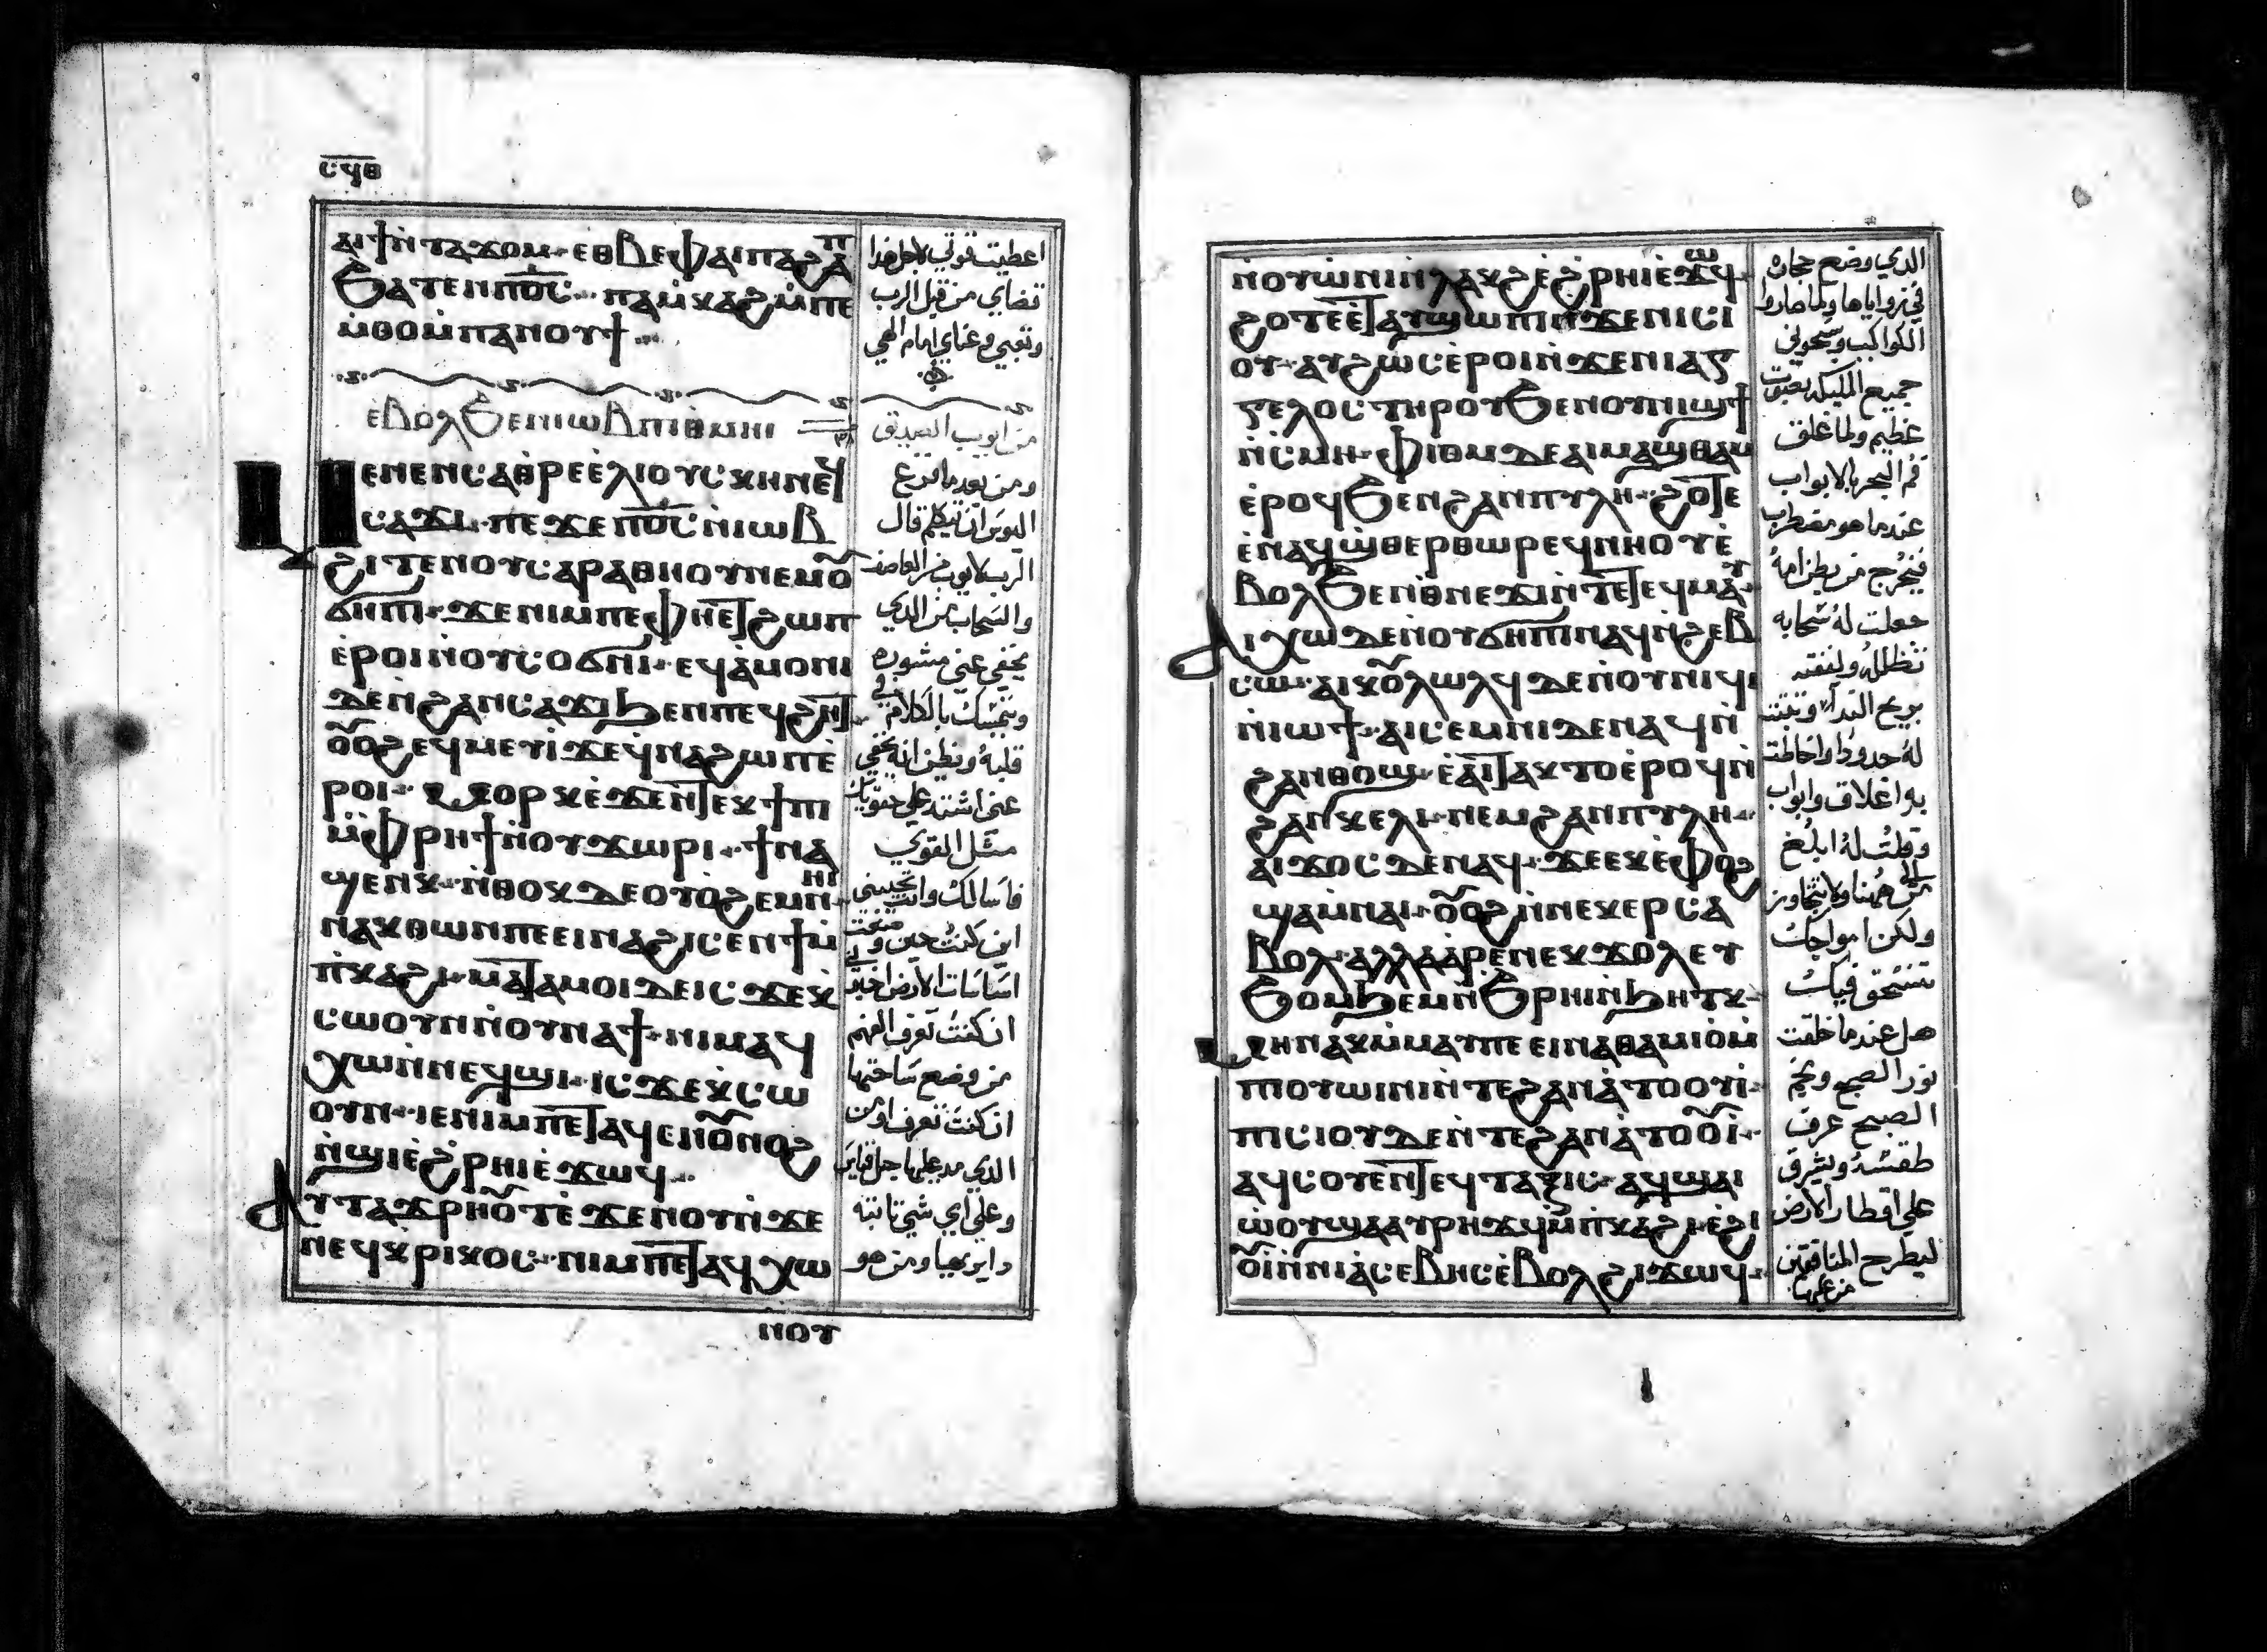 ⲥϥⲑ
ⲁⲓϯⲛ̀ⲧⲁϫⲟⲙ· ⲉⲑⲃⲉⲫⲁⲓⲡⲁϩⲁⲡ
ϧⲁⲧⲉⲛⲡ̅ⲟ̅ⲥ̅· ⲡⲁⲙ̀ⲕⲁϩⲙ̀ⲡⲉ
ⲙ̀ⲑⲟⲙ̀ⲡⲁⲛⲟⲩϯ··
ⲉ̀ⲃⲟⲗϧⲉⲛⲓⲱⲃⲡⲓⲑ̀ⲙⲏⲓ
ⲙⲉⲛⲉⲛⲥⲁⲑ̀ⲣⲉⲉ̀ⲗⲓⲟⲩⲥⲭⲏⲛⲉϥ
ⲥⲁϫⲓ· ⲡⲉϫⲉⲡ̅ⲟ̅ⲥ̅ⲛ̀ⲓⲱⲃ
ϩⲓⲧⲉⲛⲟⲩⲥⲁⲣⲁⲑⲏⲟⲩⲛⲉⲙⲟ̃
ϭⲏⲡⲓ· ϫⲉⲛⲓⲙⲡⲉⲫⲏⲉⲧϩⲱⲡ
ⲉ̀ⲣⲟⲓⲛ̀ⲟⲩⲥⲟϭⲛⲓ· ⲉϥⲁ̀ⲙⲟⲛⲓ
ⲇⲉⲛ̀ϩⲁⲛⲥⲁϫⲓϧⲉⲛⲡⲉϥϩⲏⲧ··
ⲟ̃ⲟϩⲉϥⲙⲉⲩⲓ̀ϫⲉϥ̀ⲛⲁϩⲱⲡⲉ̀
ⲣⲟⲓ· ⲙⲟⲣⲕⲉ̀ϫⲉⲛ̀ⲧⲉⲕϯⲡⲓ
ⲙ̀ⲫⲣⲏϯⲛ̀ⲟⲩϫⲱⲣⲓ· ϯⲛⲁ
ϣⲉⲛⲕ· ⲛ̀ⲑⲟⲕⲇⲉⲟⲩⲟ̀ϩⲉⲙⲛ̀ⲏⲓ
ⲛⲁⲕⲑⲱⲛⲡⲉⲉⲓⲛⲁϩⲓⲥⲉⲛϯⲙ̀
ⲡ̀ⲕⲁϩⲓ· ⲙⲁⲧⲁⲙⲟⲓⲇⲉⲓⲥϫⲉⲕ̀
ⲥⲱⲟⲩⲛⲛ̀ⲟⲩⲕⲁϯ· ⲛⲓⲙⲁϥ
ⲭⲱⲛ̀ⲛⲉϥϣⲓ· ⲓⲥϫⲉⲕ̀ⲥⲱ
ⲟⲩⲛ· ⲓⲉⲛⲓⲙⲡⲉⲧⲁϥⲉⲛⲟ̃ⲛⲟϩ
ⲛ̀ϣⲓⲉ̀ϩⲣⲏⲓⲉ̀ϫⲱϥ··
ⲁⲩⲧⲁϫⲣⲏⲟ̃ⲧⲉ̀ϫⲉⲛⲟⲩⲛ̀ϫⲉ
ⲛⲉϥⲕⲣⲓⲕⲟⲥ· ⲛⲓⲙⲡⲉⲧⲁϥⲭⲱ
ⲛⲟⲩ
اعطيت قوتي لاجل هذا
قضاي من قبل الرب
وتعبي وعناي امام الهي
من ايوب الصديق
ومن بعد ما فرغ
اليوس ان يتكلم قال
الرب لايوب من العاصف
والسحاب من الذي
يخفي عني مشوره
ويتمسك بالكلام في
قلبه ويظن انه يخفي
عني اشتد علي حقويك
مثل القوي
فاسالك وانت تجيبني
اين كنت حين وضعت
اساسات الارض اخبرني
ان كنت تعرف الفهم
من وضع ساحتها
ان كنت تعرف او من
الذي مد عليها حبل قياس
وعلي اي شي ثابته
دايرتها ومن هو
ⲛ̀ⲟⲩⲱⲛⲓⲛ̀ⲗⲁⲕϩⲉ̀ϩⲣⲏⲓⲉ̀ϫⲱϥ·
ϩⲟⲧⲉⲉ̀ⲧⲁⲩϣⲱⲡⲓⲛ̀ϫⲉⲛⲓⲥⲓ
ⲟⲩ· ⲁⲩϩⲱⲥⲉ̀ⲣⲟⲓⲛ̀ϫⲉⲛⲓⲁⲅ
ⲅⲉⲗⲟⲥⲧⲏⲣⲟⲩϧⲉⲛⲟⲩⲛⲓϣϯ
ⲛ̀ⲥⲙⲏ· ⲫⲓⲟⲙⲇⲉⲁⲓⲙⲁϣⲑⲁⲙ
ⲉ̀ⲣⲟϥϧⲉⲛϩⲁⲛⲡⲩⲗⲏ· ϩⲟⲧⲉ
ⲉ̀ⲛⲁϥϣ̀ⲑⲉⲣⲑⲱⲣⲉϥⲛⲏⲟⲩⲉ̀
ⲃⲟⲗϧⲉⲛⲑ̀ⲛⲉϫⲓⲛ̀ⲧⲉⲧⲉϥⲙⲁⲩ·
ⲁⲓⲭⲱⲇⲉⲛⲟⲩϭⲏⲡⲓⲛⲁϥⲛ̀ϩⲉⲃ
ⲥⲱ· ⲁⲓⲕⲟ̃ⲗⲱⲗϥⲇⲉⲛⲟⲩⲛⲓϥⲓ
ⲛ̀ⲓⲱϯ· ⲁⲓⲥⲉⲙⲛⲓⲇⲉⲛⲁϥⲛ̀
ϩⲁⲛⲑⲱϣ· ⲉ̀ⲁⲓⲧⲁⲕⲧⲟⲉ̀ⲣⲟϥⲛ̀
ϩⲁⲛⲕⲉⲗⲓ· ⲛⲉⲙϩⲁⲛⲡⲩⲗⲏ··
ⲁⲓϫⲟⲥⲇⲉⲛⲁϥ· ϫⲉⲉⲕⲉ̀ⲫⲟϩ
ϣⲁⲙ̀ⲛⲁⲓ· ⲟ̃ⲟϩⲛ̀ⲛⲉⲕⲉⲣⲥⲁ
ⲃⲟⲗ· ⲁⲗⲗⲁⲁ̀ⲣⲉⲛⲉⲕϫⲟⲗ ⲉⲩ
ϧⲟⲙϧⲉⲙⲛ̀ϧⲣⲏⲓⲛ̀ϧⲏⲧⲕ·
ϫⲏⲛⲁⲕⲙ̀ⲙⲁⲩⲡⲉⲉⲓⲛⲁⲑⲁⲙⲓⲟⲙ̀
ⲡⲓⲟⲩⲱⲓⲛⲓⲛ̀ⲧⲉϩⲁⲛⲁ̀ⲧⲟⲟⲩⲓ̀·
ⲡⲓⲥⲓⲟⲩⲇⲉⲛ̀ⲧⲉϩⲁⲛⲁ̀ⲧⲟⲟ̃ⲓ··
ⲁϥⲥⲟⲩⲉⲛ̀ⲧⲉϥⲧⲁⲝⲓⲥ· ⲁϥϣⲁⲓ
ⲱ̀ⲟⲩϣⲁⲁⲩⲣⲏϫϥⲙ̀ⲡ̀ⲕⲁϩⲓ· ⲉ̀ϩⲓ
ⲟ̃ⲓⲛ̀ⲛⲓⲁ̀ⲥⲉⲃⲏⲥⲉ̀ⲃⲟⲗϩⲓϫⲱϥ··
الذي وضع حجاره
في زواياها ولما صاروا
الكواكب وسبحوني
جميع المليكه بصوت
عظيم ولما غلق
فم البحر بالابواب
عندما هو مضطرب
فيخرج من بطن امه
جعلت له سحابه
تظلله ولففته
بريح الندآ وثبتت
له حدودا واحاطت
به اغلاق وابواب
وقلت له ابلغ
الي ههنا ولا تتجاوز
ولكن امواجك
تنسحق فيك
هل عندما خلقت
نور الصبح ونجم
الصبح عرف
طقسه ويشرق
علي اقطار الارض
ليطرح المنافقين
من عليها